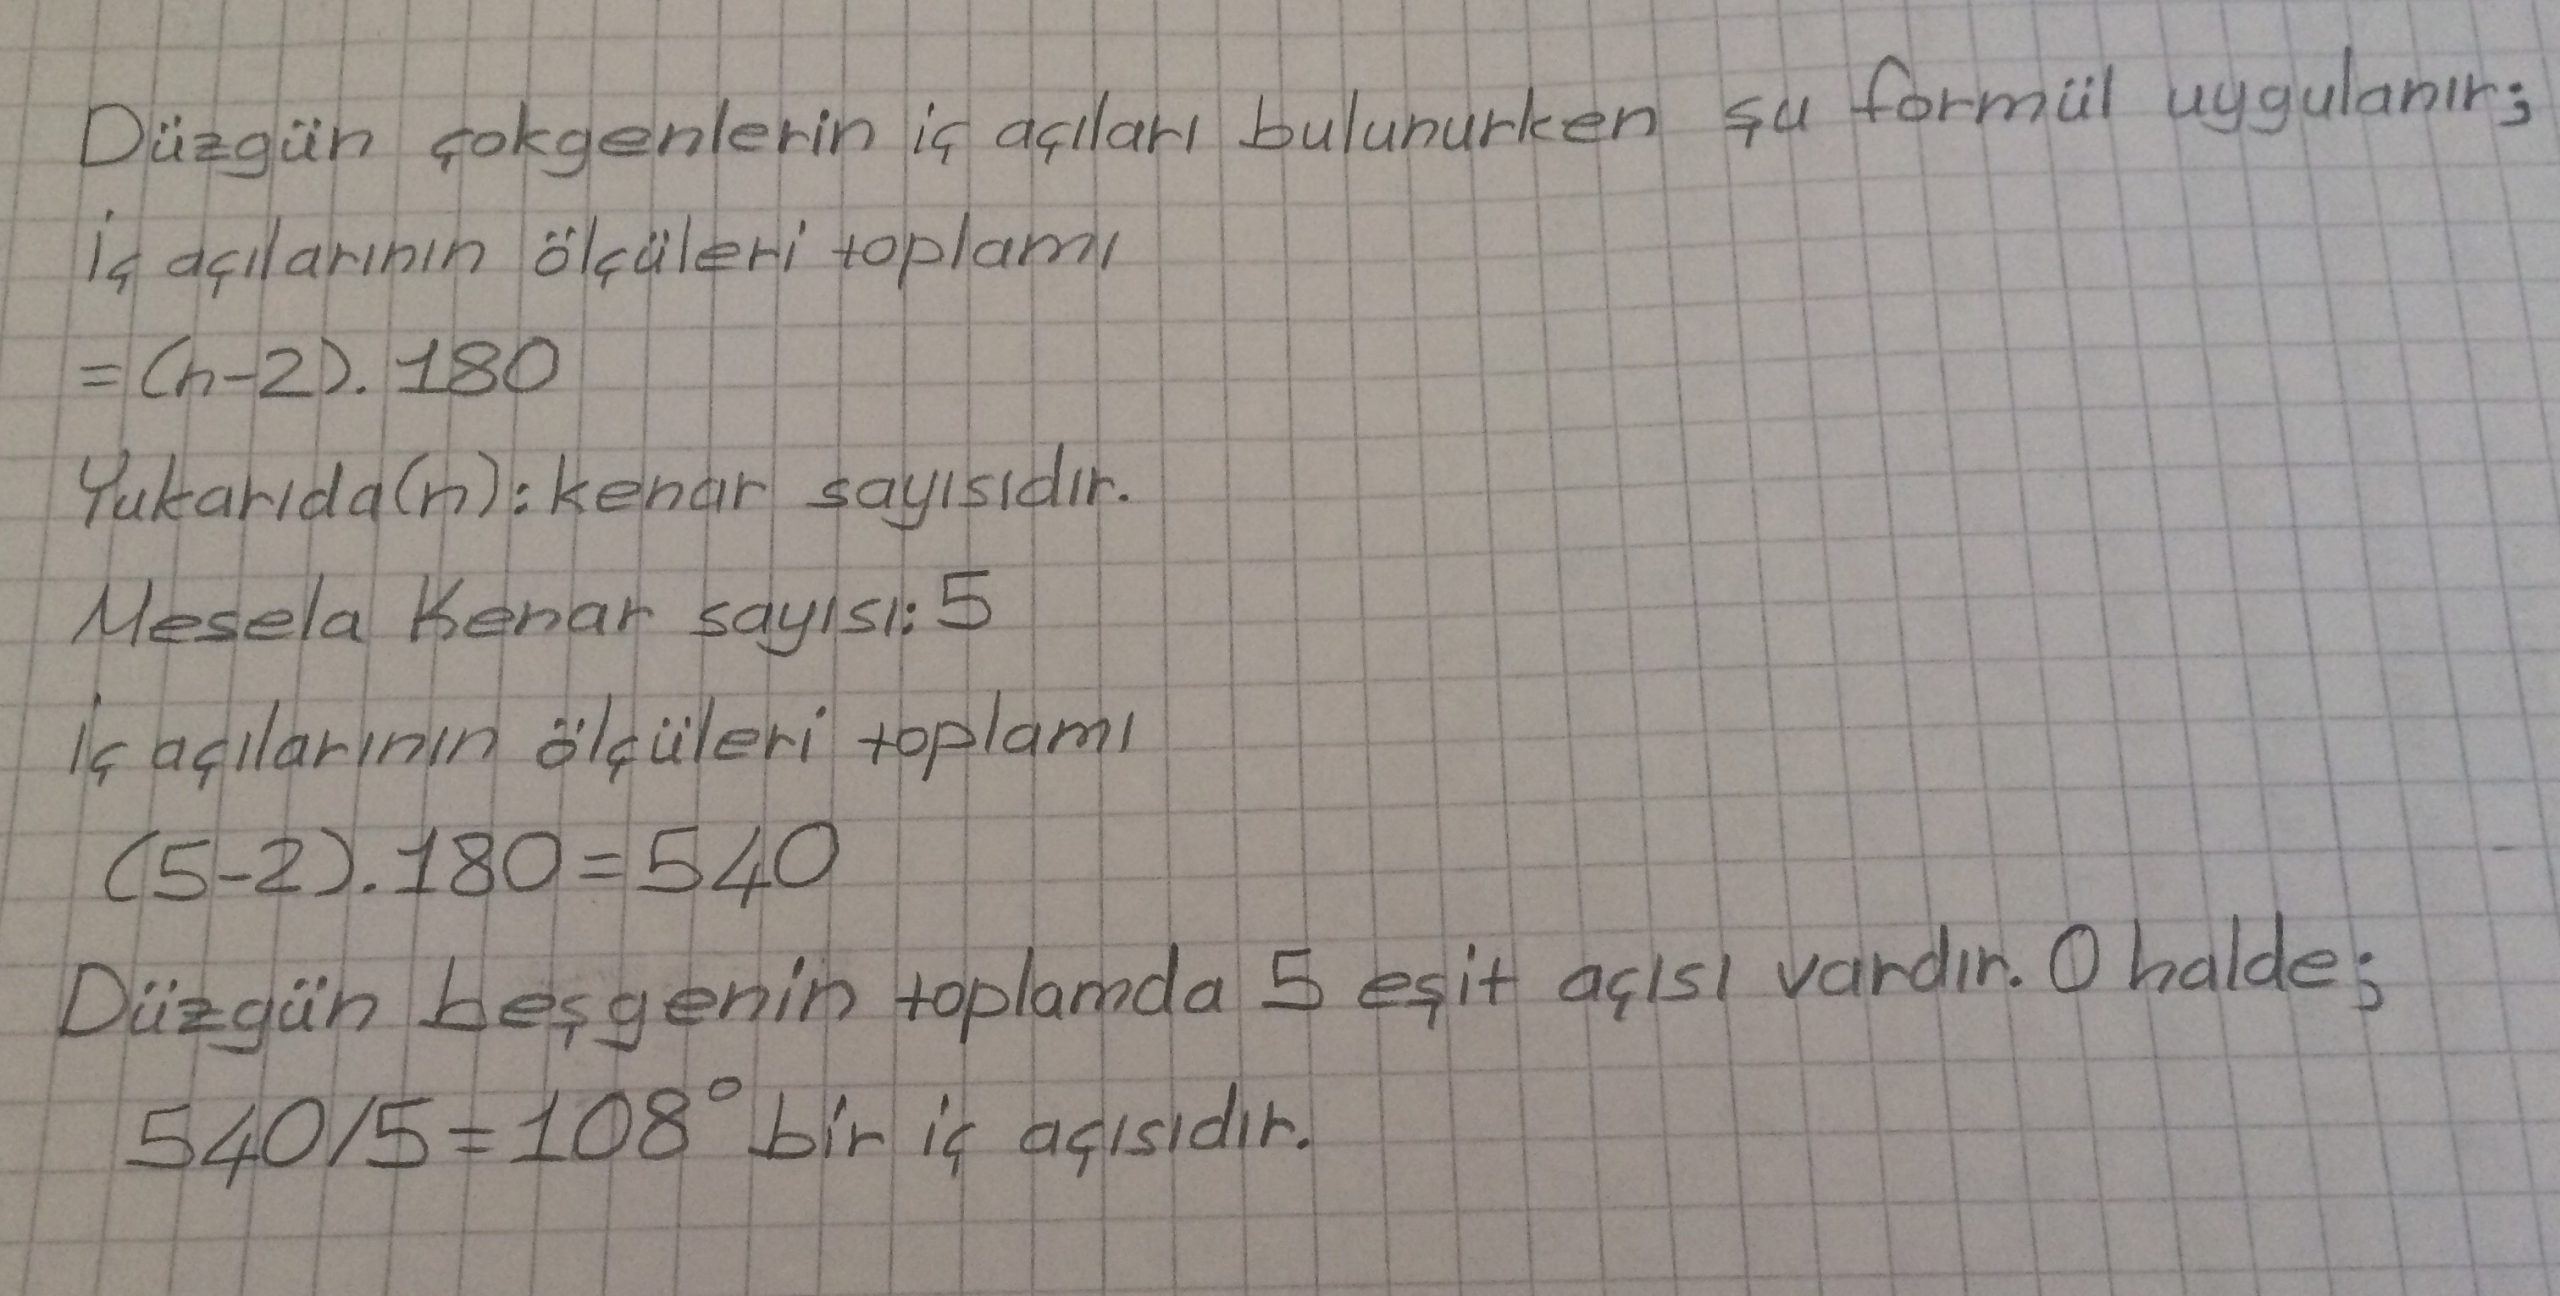 Düzgün çokgenlerin iç açıları bulunurken şu formül uygulanır;
İç açılarının ölçüleri toplamı
=(n-2).180
Yukarıda(n):kenar sayısıdır.
Mesela Kenar sayısı:5
İç açılarının ölçüleri toplamı
(5-2).180=540
Düzgün beşgenin toplamda 5 eşit açısı vardır. O halde;
540/5=108° bir iç açısıdır.